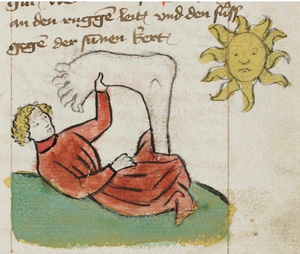 an den ruggen leit vnd den fuͦss
gegen der sunen kert